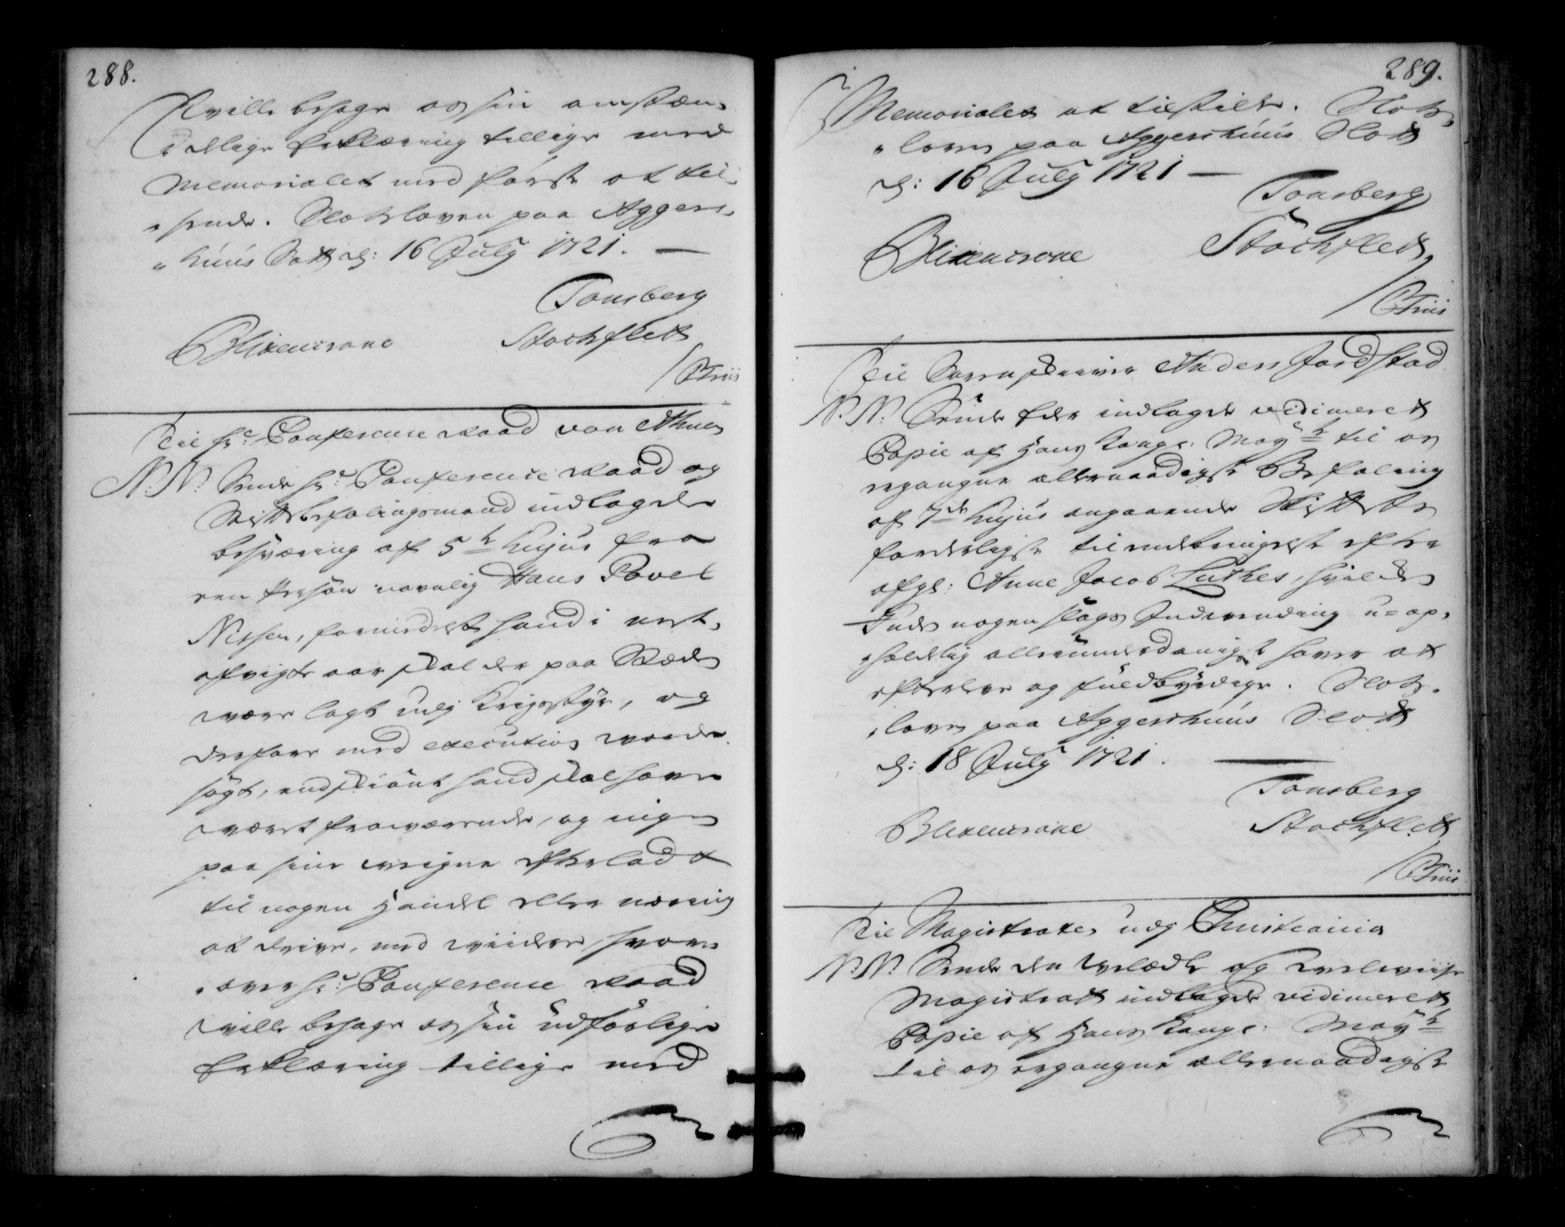 288.
ville behage os sin omstæn-
delige Erklæring tillige med
Memorialet med første at til-
sende. Slotsloven paa Aggers-
huus Slott d: 16 July 1721. —
Tonsberg
Blixencrone Stockfleth
/CFriis
Til Hr: Conference Raad von Ahnen
N: N: Sende Hr: Conference Raad og
Stiftsbefalingsmand indlagde
besværing af 5te hujus fra
een Persohn navnlig Hans Povel
Nissen, formedelst hand i nest-
afvigte aar skal der paa Stædet
være lagt udj Krigsstyr, og
derfore med execution worden
søgt, endskiönt hand skal have
wæret fraværende, og ingen
paa sine weigne efterladt
til nogen Handel eller næring
at drive, med wiidere, hvor-
over Hr: Conference Raad
wille behage os sin udförlige
Erklæring tillige med
289.
Memorialet at tilstille. Slots-
loven paa Aggershuus Slott
d: 16 July 1721 —
Tonsberg
Blixencrone Stockfleth
/CFriis
Til Sorenskriver Anders Jordstad
N: N: Sende eder indlagde vidimerett
Copie af Hans Kongl: Mayts til os
ergangne allernaadigste Befaling
af 7de hujus angaaende Skiftets
forderligste tilendebringelse efter
afgl: Anne Jacob Luthes, hvilcken
I uden nogen slags Indvending u-op-
holdelig allerunderdanigst haver at
efterleve og fuldbyrdige. Slots-
loven paa Aggershuus Slott
d: 18 July 1721.
Tonsberg
Blixencrone Stockfleth
/CFriis
Til Magistraten udj Christiania
N: N: Sende den Velædle og Velviise
Magistratt indlagde vidimerett
Copie af Hans Kongl: Mayts
til os ergangne allernaadigste